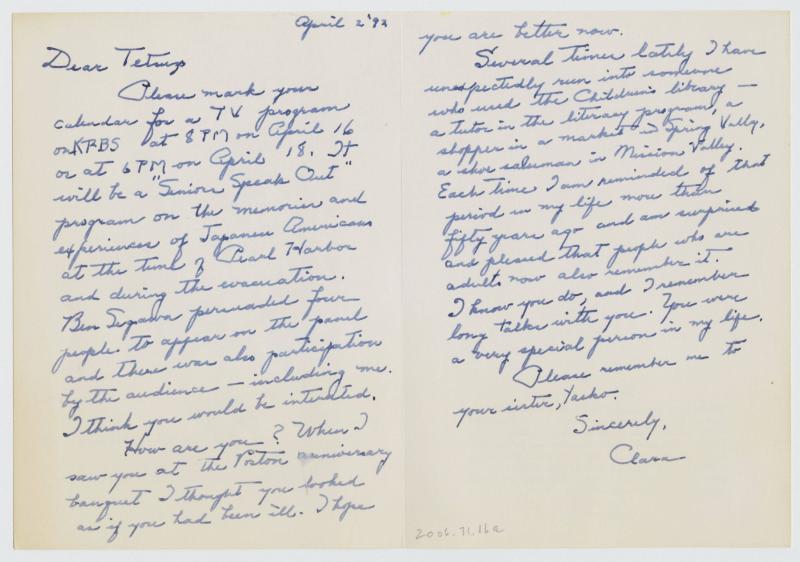 April 2 '92
Dear Tetsuzo
Please mark your
calendar for a TV program
on KPBS at 8 PM on April 16
or at 6 PM on April 18. It
will be a "Senior Speak Out"
program on the memories and
experiences of Japanese Americans
at the time of Pearl Harbor
and during the evacuation.
Ben Segawa persuaded four
people to appear on the panel
and there was also participation
by the audience — including me.
I think you would be interested.
How are you? When I
saw you at the Poston anniversary
banquet I thought you looked
as if you had been ill. I hope
you are better now.
Several times lately I have
unexpectedly run into someone
who used the Children's library —
a tutor in the literacy program, a
shopper in a market in Spring Vally,
a shoe salesman in Mission Valley.
Each time I am reminded of that
period in my life more than
fifty years ago and am surprised
and pleased that people who are
adults now also remember it.
I know you do, and I remember
long talks with you. You were
a very special person in my life.
Please remember me to
your sister, Yaeko.
Sincerely,
Clara
2006.71.16a